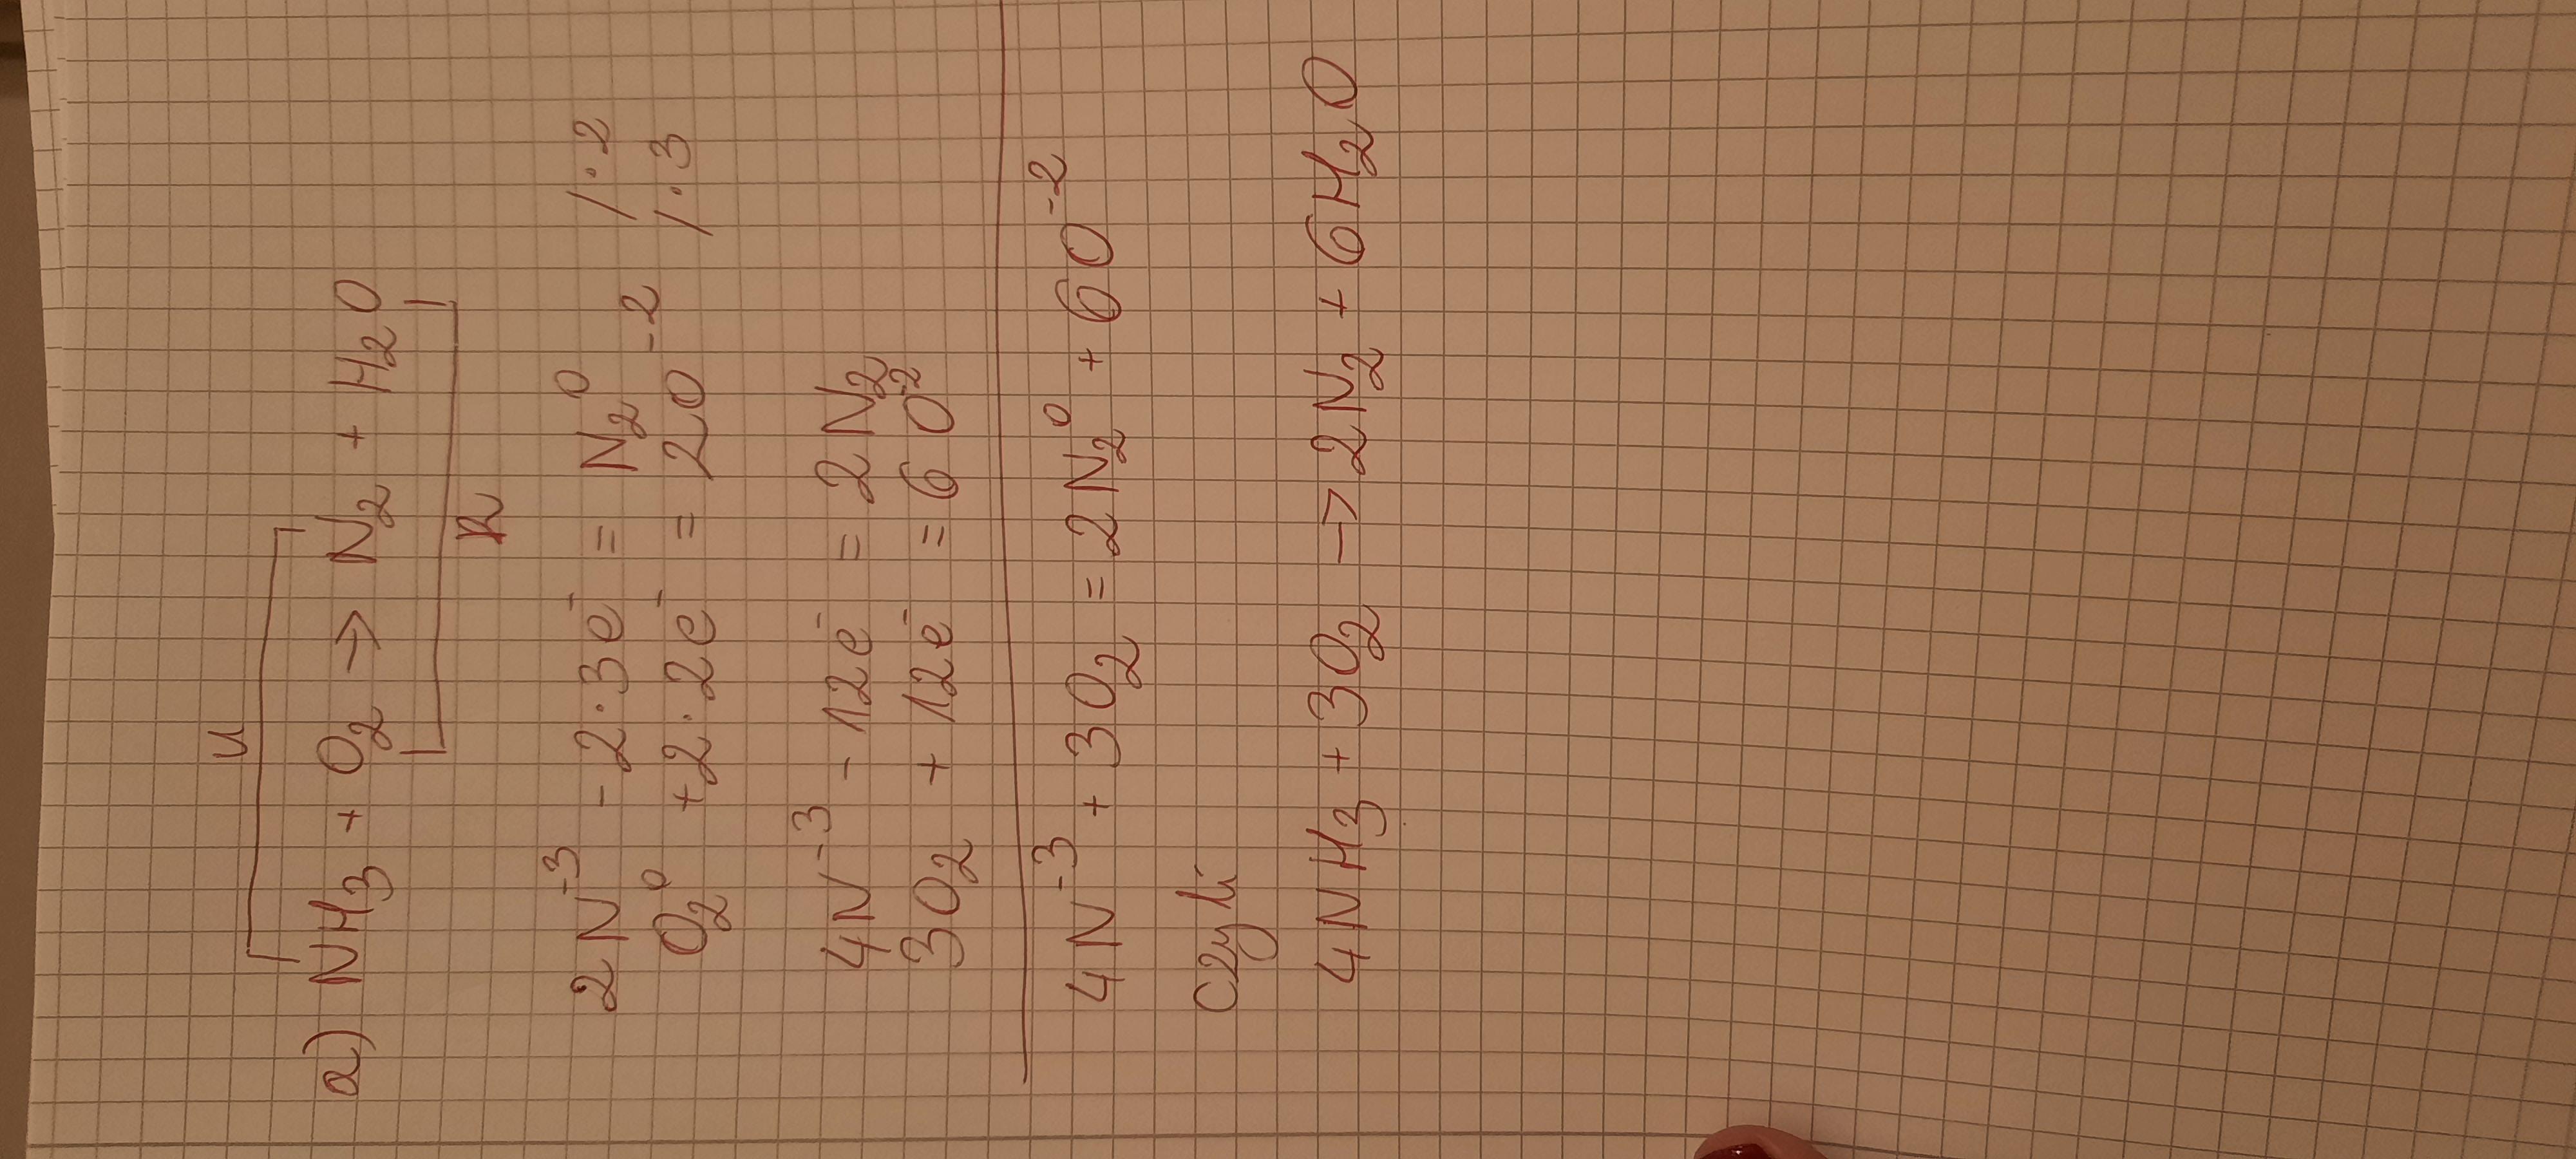 u
a) NH₃ + O₂ → N₂ + H₂O
R
2N⁻³ - 2·3e⁻ = N₂⁰ /·2
O₂⁰ +2·2e⁻ = 2O⁻² /·3
4N⁻³ - 12e⁻ = 2N₂
3O₂ + 12e⁻ = 6O⁻²
4N⁻³ + 3O₂ = 2N₂⁰ + 6O⁻²
czyli
4NH₃ + 3O₂ → 2N₂ + 6H₂O